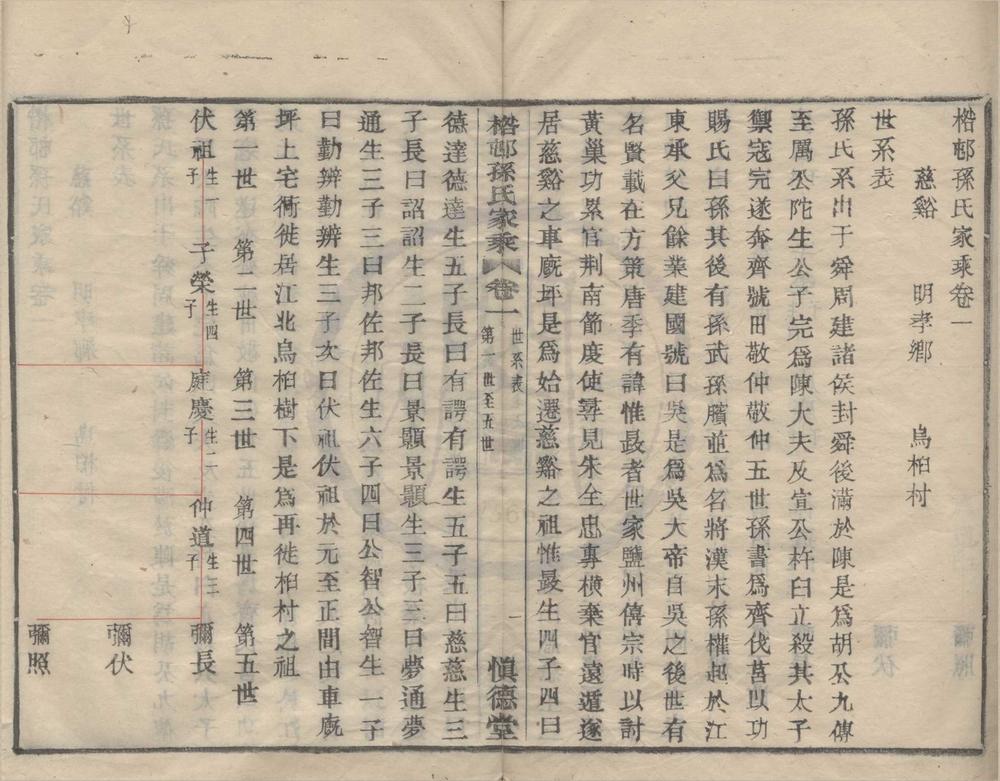 桕邨孫氏家乘卷一
慈谿 明孝鄉 烏桕村
世系表
孫氏系出于舜周建諸侯封舜後滿於陳是爲胡公九傳
至厲公陀生公子完爲陳大夫及宣公杵臼立殺其太子
禦寇完遂奔齊號田敬仲敬仲五世孫書爲齊伐莒以功
賜氏曰孫其後有孫武孫臏並爲名將漢末孫權起於江
東承父兄餘業建國號曰吳是爲吳大帝自吳之後世有
名賢載在方策唐季有諱惟晸者世家鹽州僖宗時以討
黃巢功累官荆南節度使尋見朱全忠專橫棄官遠遁遂
居慈谿之車廐坪是爲始遷慈谿之祖惟晸生四子四曰
桕邨孫氏家乘 卷一 世系表 第一世至五世 一 愼德堂
德達德達生五子長曰有諤有諤生五子五曰慈慈生三
子長曰詔詔生二子長曰景顯景顯生三子三曰夢通夢
通生三子三曰邦佐邦佐生六子四曰公智公智生一子
曰勤辨勤辨生三子次曰伏祖伏祖於元至正間由車廐
坪上宅衕徙居江北烏桕樹下是爲再徙桕村之祖
第一世 第二世 第三世 第四世 第五世
伏祖生一子 子榮生四子 庭慶生二六子 仲道生三子 彌長
彌伏
彌照